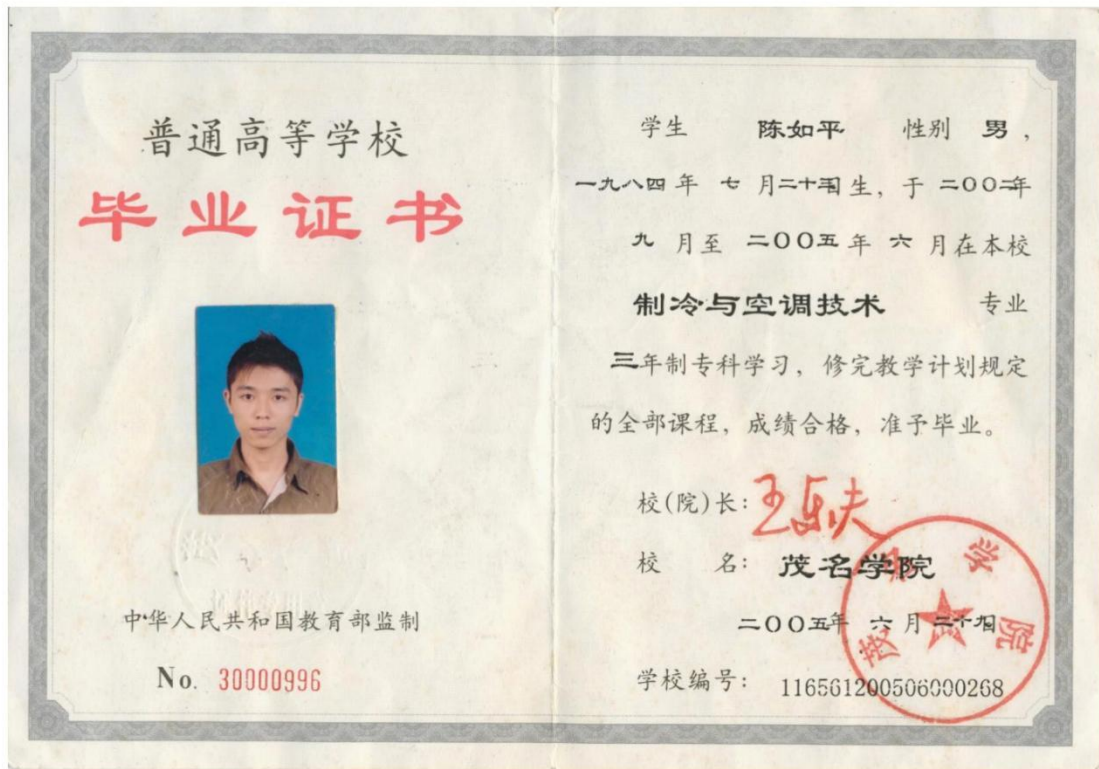 普通高等学校
毕业证书
中华人民共和国教育部监制
No. 30000996
学生 陈如平 性别 男，
一九八四年 七 月二十 生，于 二〇〇二年
九 月至 二〇〇五 年 六 月在本校
制冷与空调技术 专业
三年制专科学习，修完教学计划规定
的全部课程，成绩合格，准予毕业。
校(院)长：王乐夫
校 名：茂名学院
二〇〇五年 六 月 二十九日
学校编号：116561200506000268
茂名学院